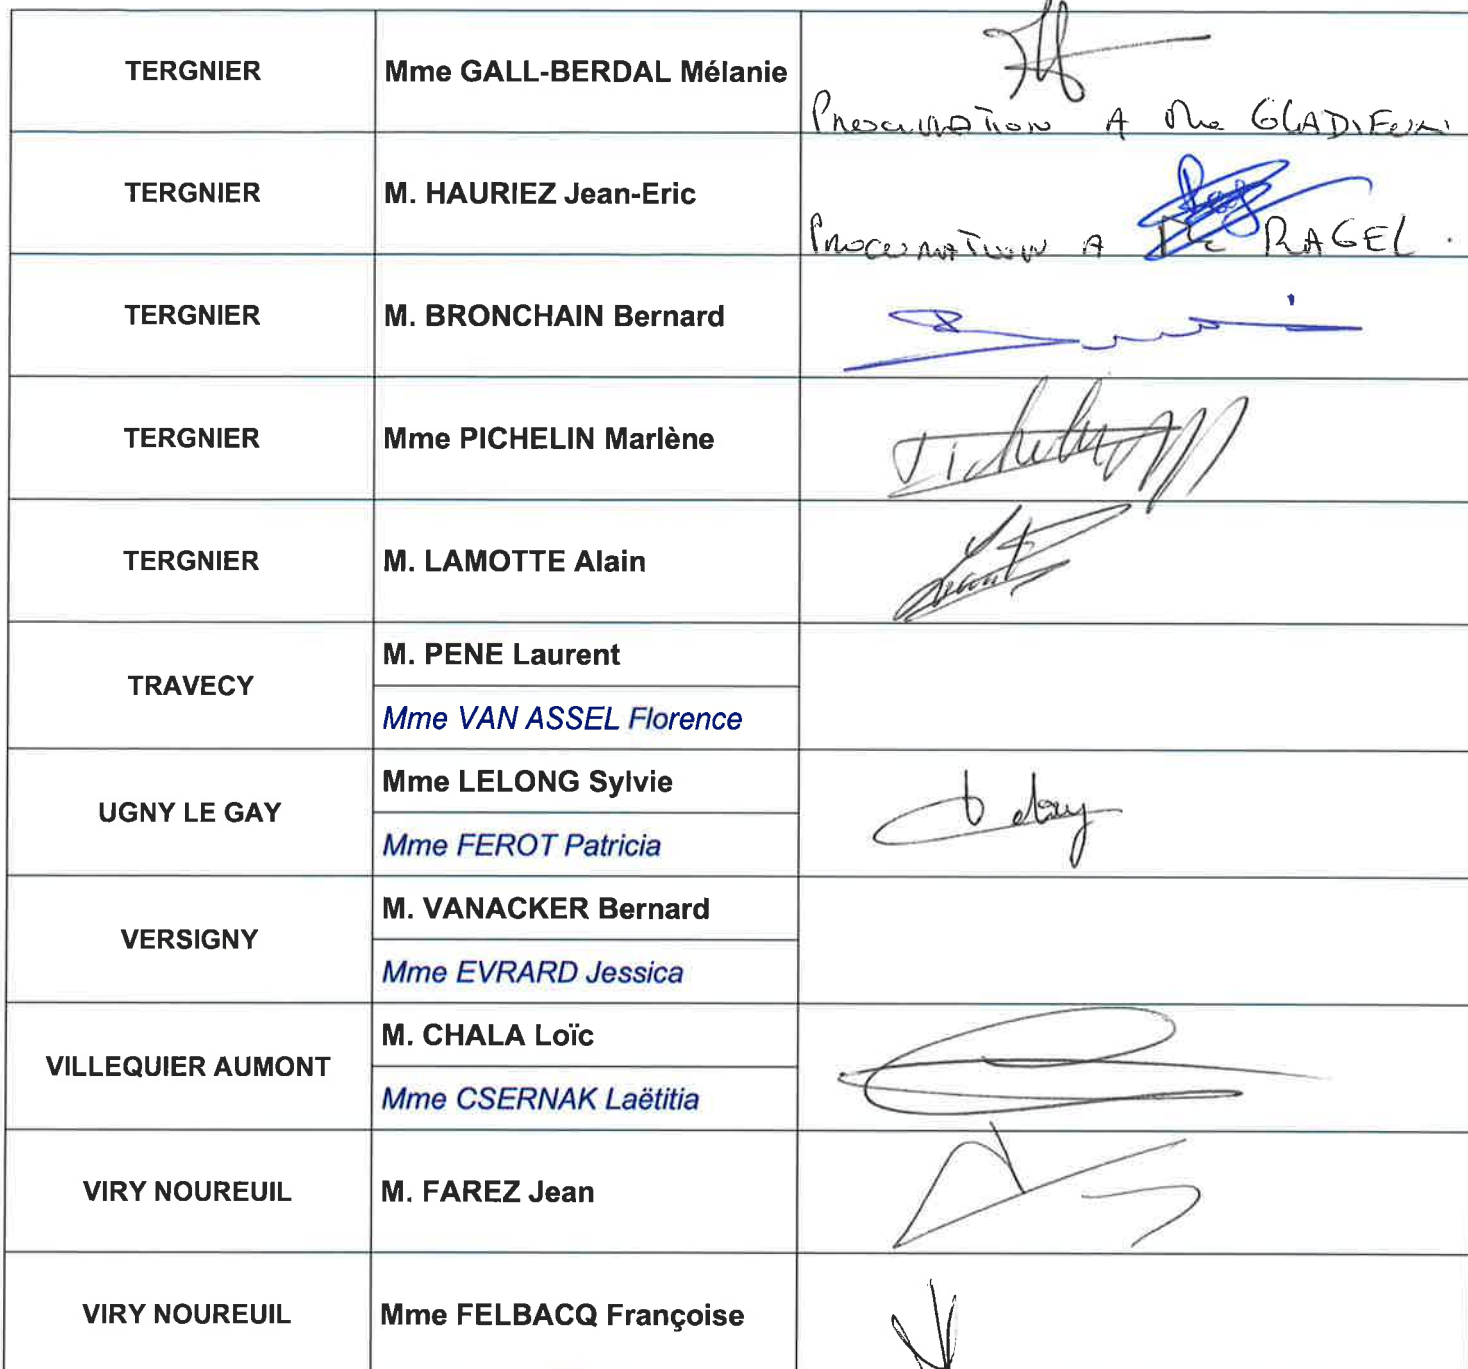 TERGNIER
Mme GALL-BERDAL Mélanie
Procuration A Mme GLADIEUX
TERGNIER
M. HAURIEZ Jean-Eric
Procuration A RAGEL.
TERGNIER
M. BRONCHAIN Bernard
TERGNIER
Mme PICHELIN Marlène
TERGNIER
M. LAMOTTE Alain
TRAVECY
M. PENE Laurent
Mme VAN ASSEL Florence
UGNY LE GAY
Mme LELONG Sylvie
Mme FEROT Patricia
VERSIGNY
M. VANACKER Bernard
Mme EVRARD Jessica
VILLEQUIER AUMONT
M. CHALA Loïc
Mme CSERNAK Laëtitia
VIRY NOUREUIL
M. FAREZ Jean
VIRY NOUREUIL
Mme FELBACQ Françoise